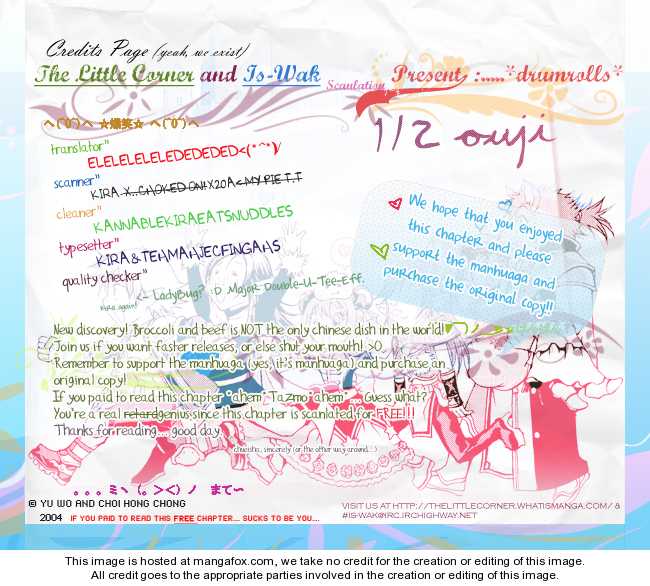 Credits Page (yeah, we exist)
The Little Corner and Is-Wak Scanlation Present, :.....*drumrolls*
1/2 ouji
translator"
ELELELELELEDEDEDED<(*^*)/
scanner"
KIRA X..CHOKED ON! X20A <MY PIE T.T
cleaner"
KANNABLEKIRAEATSNUDDLES
typesetter"
quality checker"
<- LadyBug? :D Major Double-U-Tee-Eff.
kira again!
We hope that you enjoyed
this chapter and please
support the manhuaga and
purchase the original copy!!
New discovery! Broccoli and beef is NOT the only chinese dish in the world!
Join us if you want faster releases, or else shut your mouth! >O
Remember to support the manhuaga (yes, it's manhuaga) and purchase an
original copy!
If you paid to read this chapter *ahem* Tazmo *ahem*... Guess what?
You're a real retard genius since this chapter is scanlated for FREE!!!
Thanks for reading... good day.
© YU WO AND CHOI HONG CHONG
2004 IF YOU PAID TO READ THIS FREE CHAPTER... SUCKS TO BE YOU...
VISIT US AT HTTP://THELITTLECORNER.WHATISMANGA.COM/ &
#IS-WAK@IRC.IRCHIGHWAY.NET
This image is hosted at mangafox.com, we take no credit for the creation or editing of this image.
All credit goes to the appropriate parties involved in the creation or editing of this image.